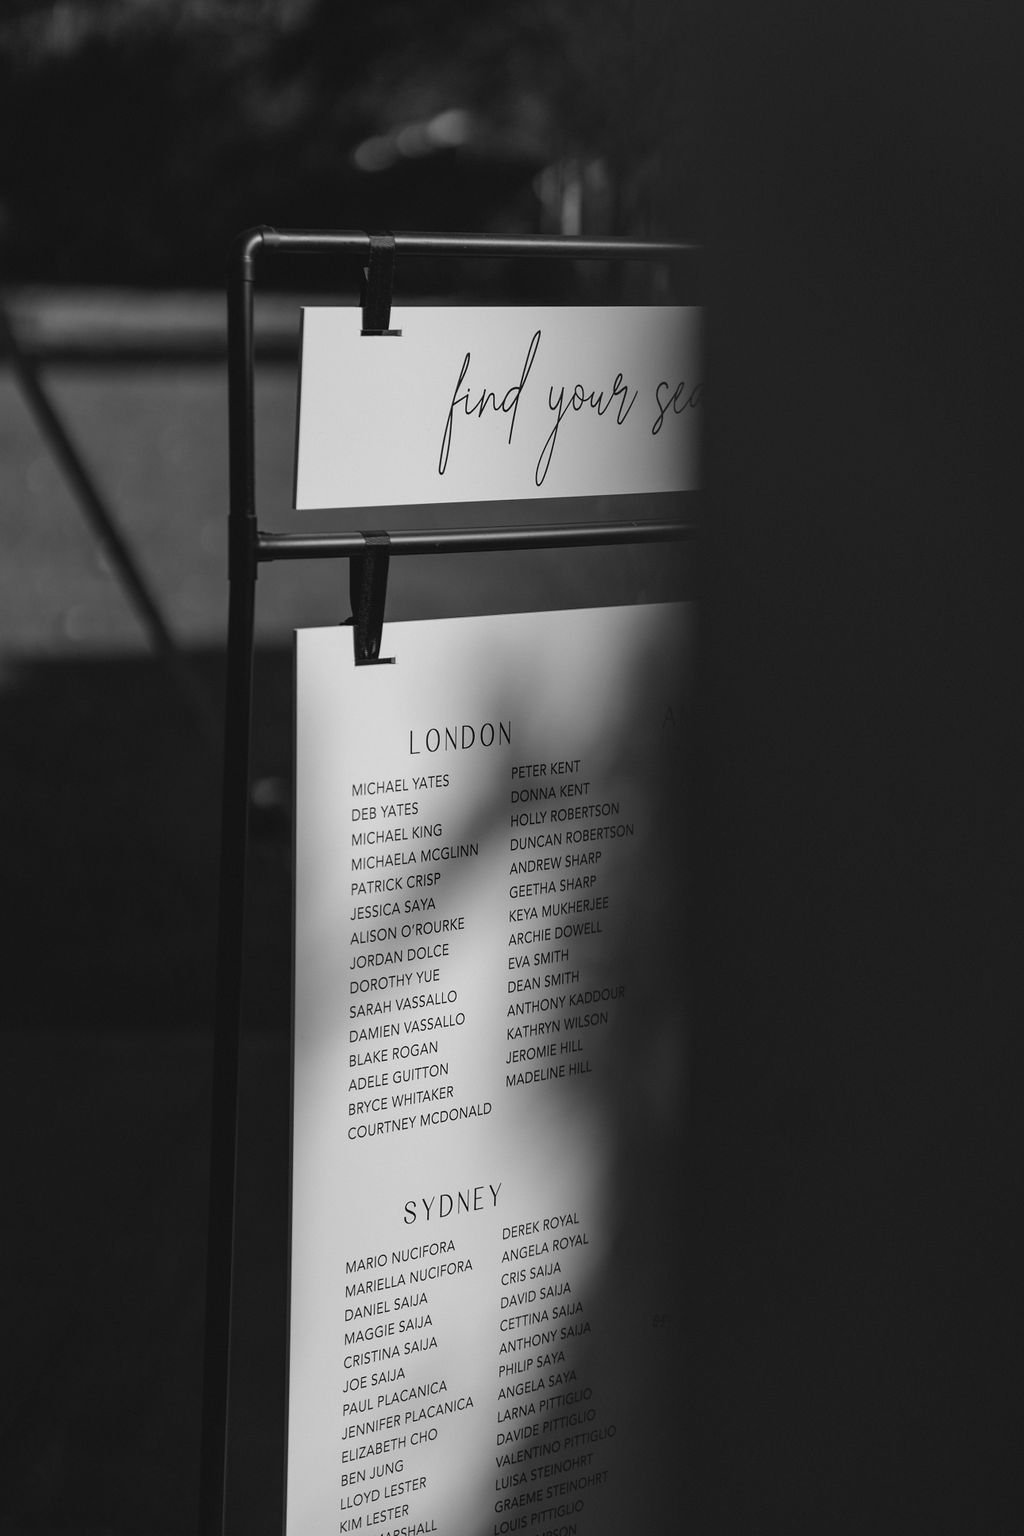 find your
LONDON
MICHAEL YATES
DEB YATES
MICHAEL KING
MICHAELA MCGLINN
PATRICK CRISP
JESSICA SAYA
ALISON O'ROURKE
JORDAN DOLCE
DOROTHY YUE
SARAH VASSALLO
DAMIEN VASSALLO
BLAKE ROGAN
ADELE GUITTON
BRYCE WHITAKER
COURTNEY MCDONALD
PETER KENT
DONNA KENT
HOLLY ROBERTSON
DUNCAN ROBERTSON
ANDREW SHARP
GEETHA SHARP
KEYA MUKHERJEE
ARCHIE DOWELL
EVA SMITH
DEAN SMITH
ANTHONY KADDOUR
KATHRYN WILSON
JEROMIE HILL
MADELINE HILL
SYDNEY
MARIO NUCIFORA
MARIELLA NUCIFORA
DANIEL SAIJA
MAGGIE SAIJA
CRISTINA SAIJA
JOE SAIJA
PAUL PLACANICA
JENNIFER PLACANICA
ELIZABETH CHO
BEN JUNG
LLOYD LESTER
KIM LESTER
MARSHALL
DEREK ROYAL
ANGELA ROYAL
CRIS SAIJA
DAVID SAIJA
CETTINA SAIJA
ANTHONY SAIJA
PHILIP SAYA
ANGELA SAYA
LARNA PITTIGLIO
DAVIDE PITTIGLIO
VALENTINO PITTIGLIO
LUISA STEINOHRT
GRAEME STEINOHRT
LOUIS PITTIGLIO